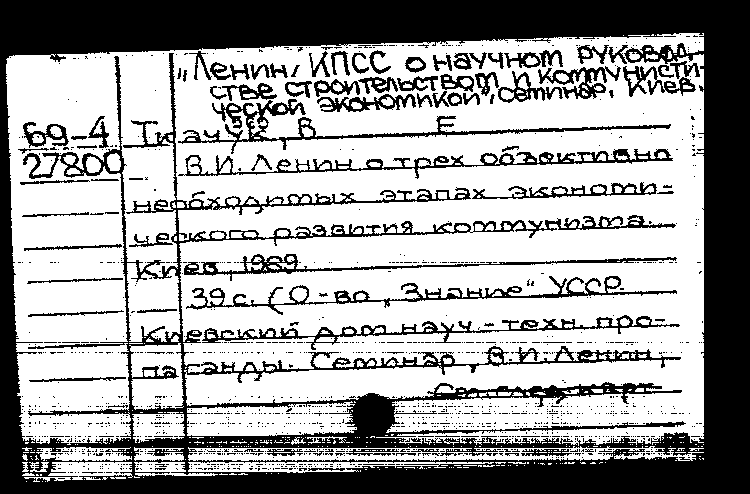 „Ленин, КПСС о научном руковод-
стве строительством и коммунисти-
ческой экономикой", семинар, Киев.
1969
69-4 Ткачук, В Е
27800 В.И. Ленин о трех объективно
необходимых этапах экономи-
ческого развития коммунизма.
Киев, 1969.
39 с. (О-во „Знание" УССР.
Киевский дом науч.-техн. про-
паганды. Семинар „В.И. Ленин,
См. след. карт